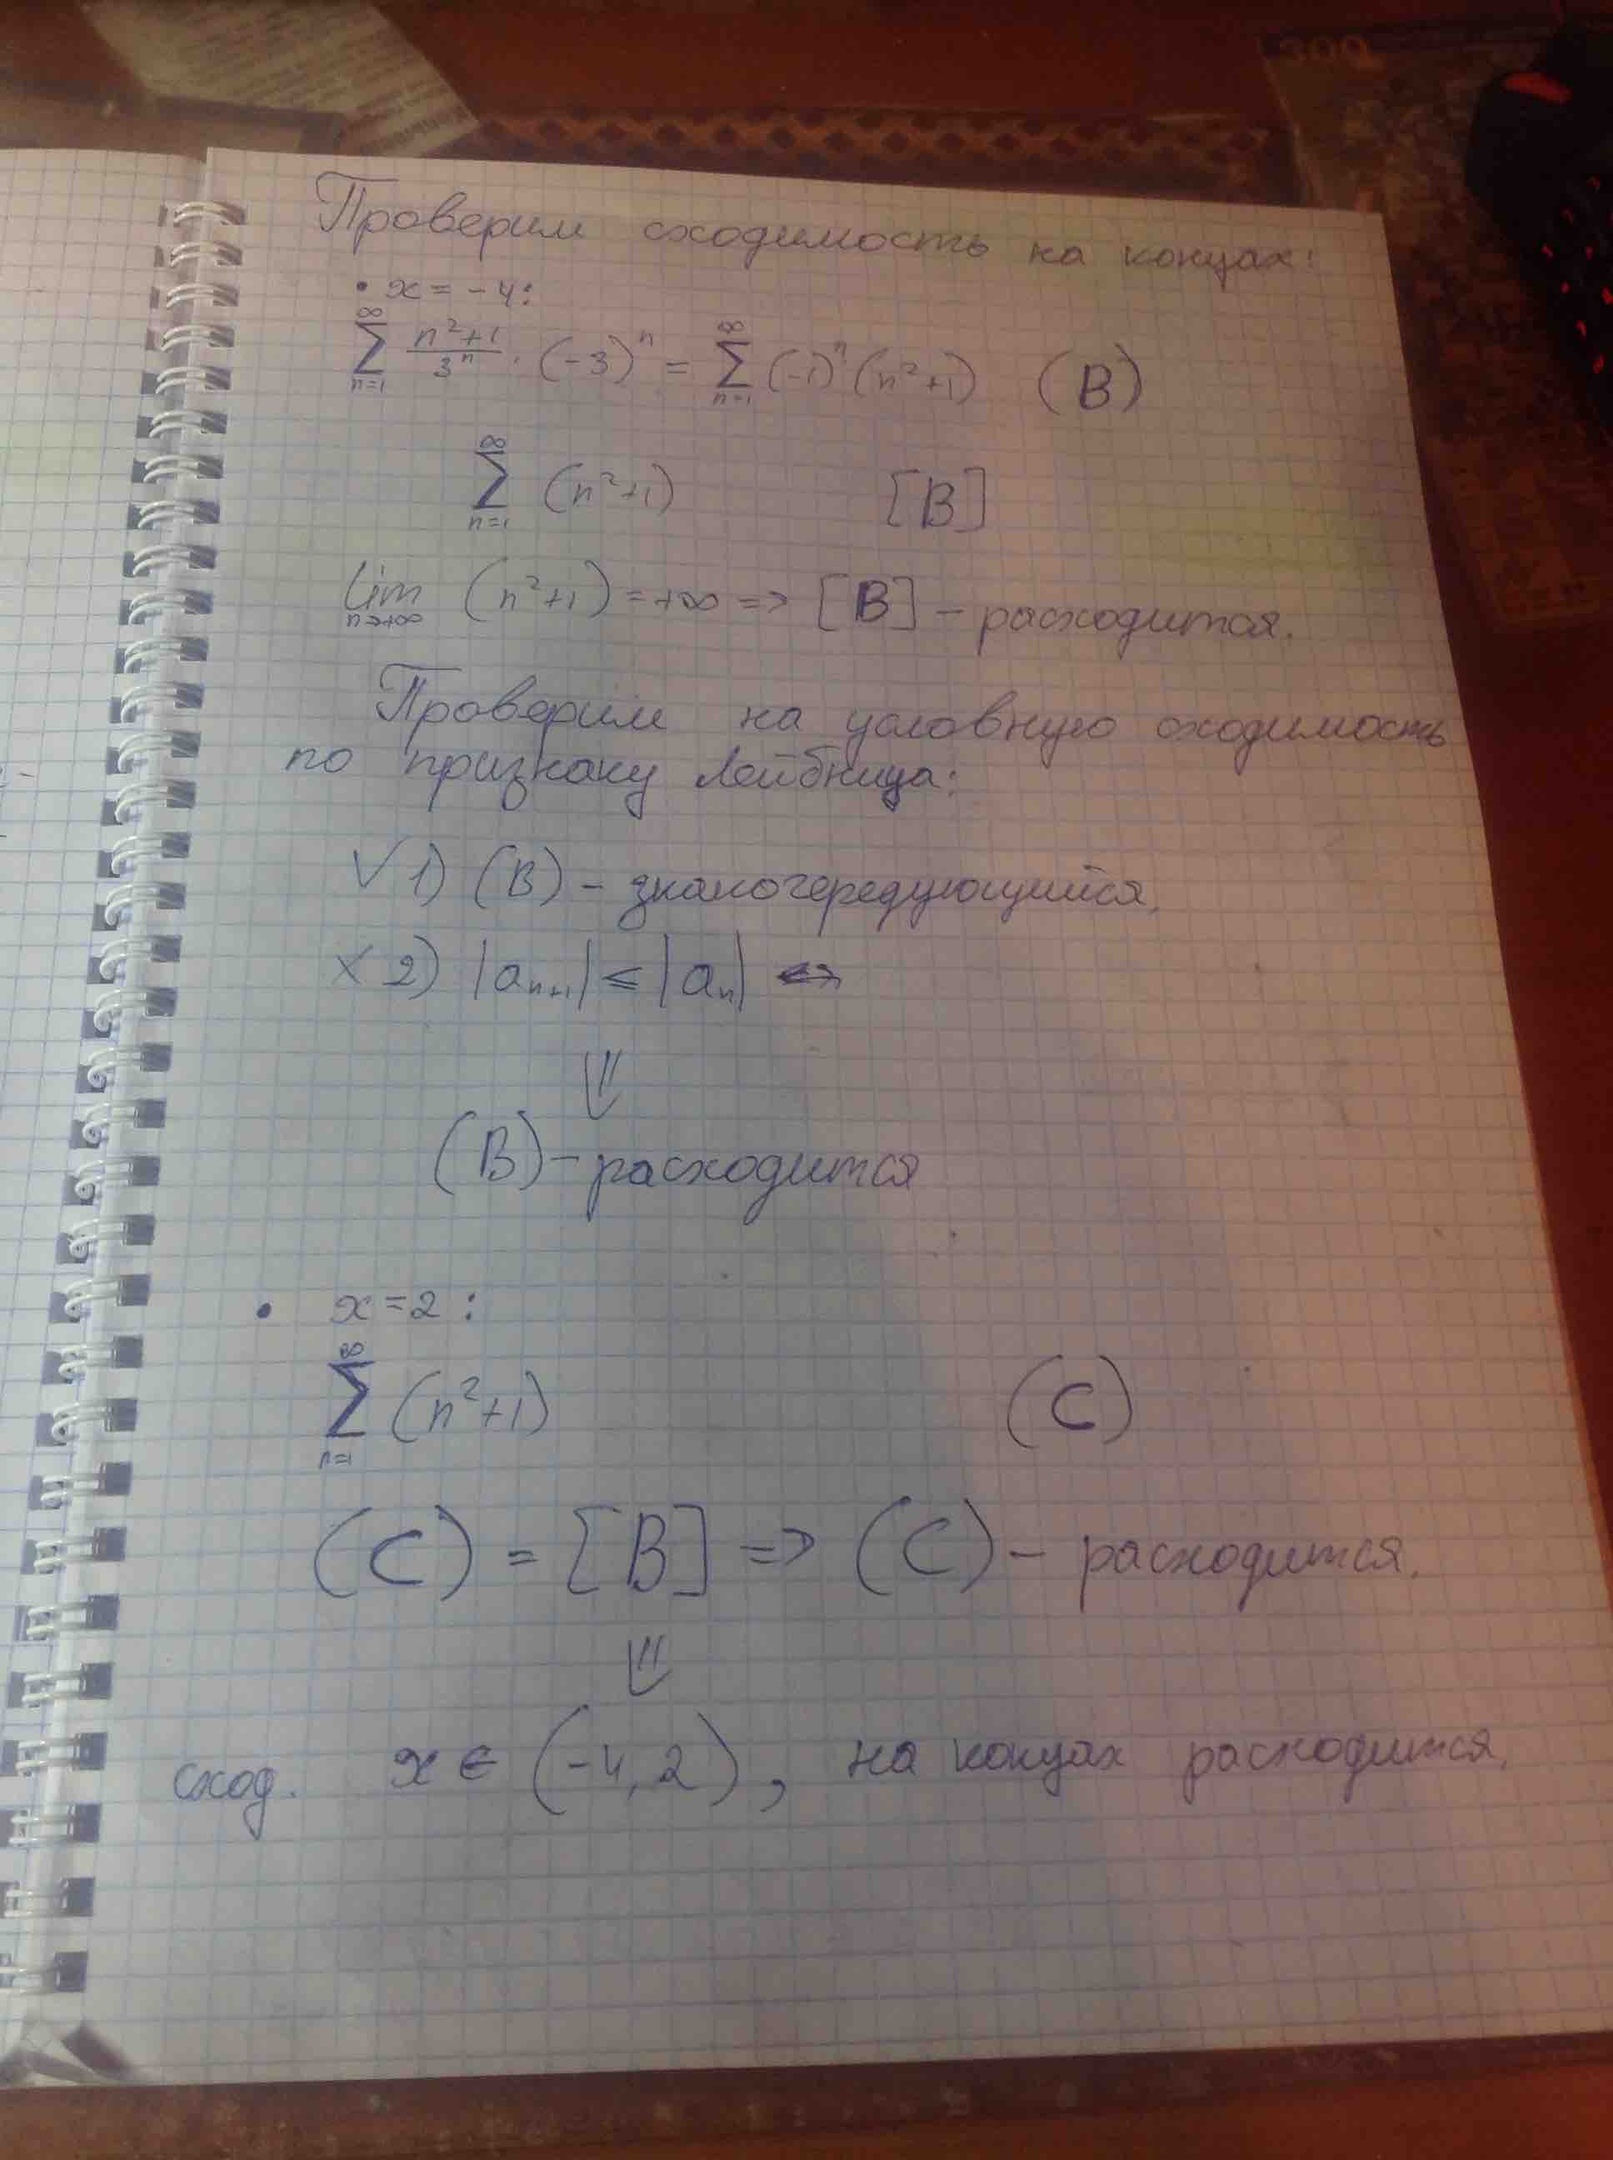 Проверим сходимость на концах:
• x = -4:
∑_{n=1}^{∞} (n²+1)/3ⁿ · (-3)ⁿ = ∑_{n=1}^{∞} (-1)ⁿ (n²+1) (B)
∑_{n=1}^{∞} (n²+1) [B]
lim_{n→+∞} (n²+1) = +∞ => [B] - расходится.
Проверим на условную сходимость
по признаку Лейбница:
✓ 1) (B) - знакочередующийся,
× 2) |a_{n+1}| ≤ |a_n| <=>
⇓
(B) - расходится
• x = 2 :
∑_{n=1}^{∞} (n²+1) (C)
(C) = [B] => (C) - расходится.
⇓
сход. x ∈ (-4, 2), на концах расходится.